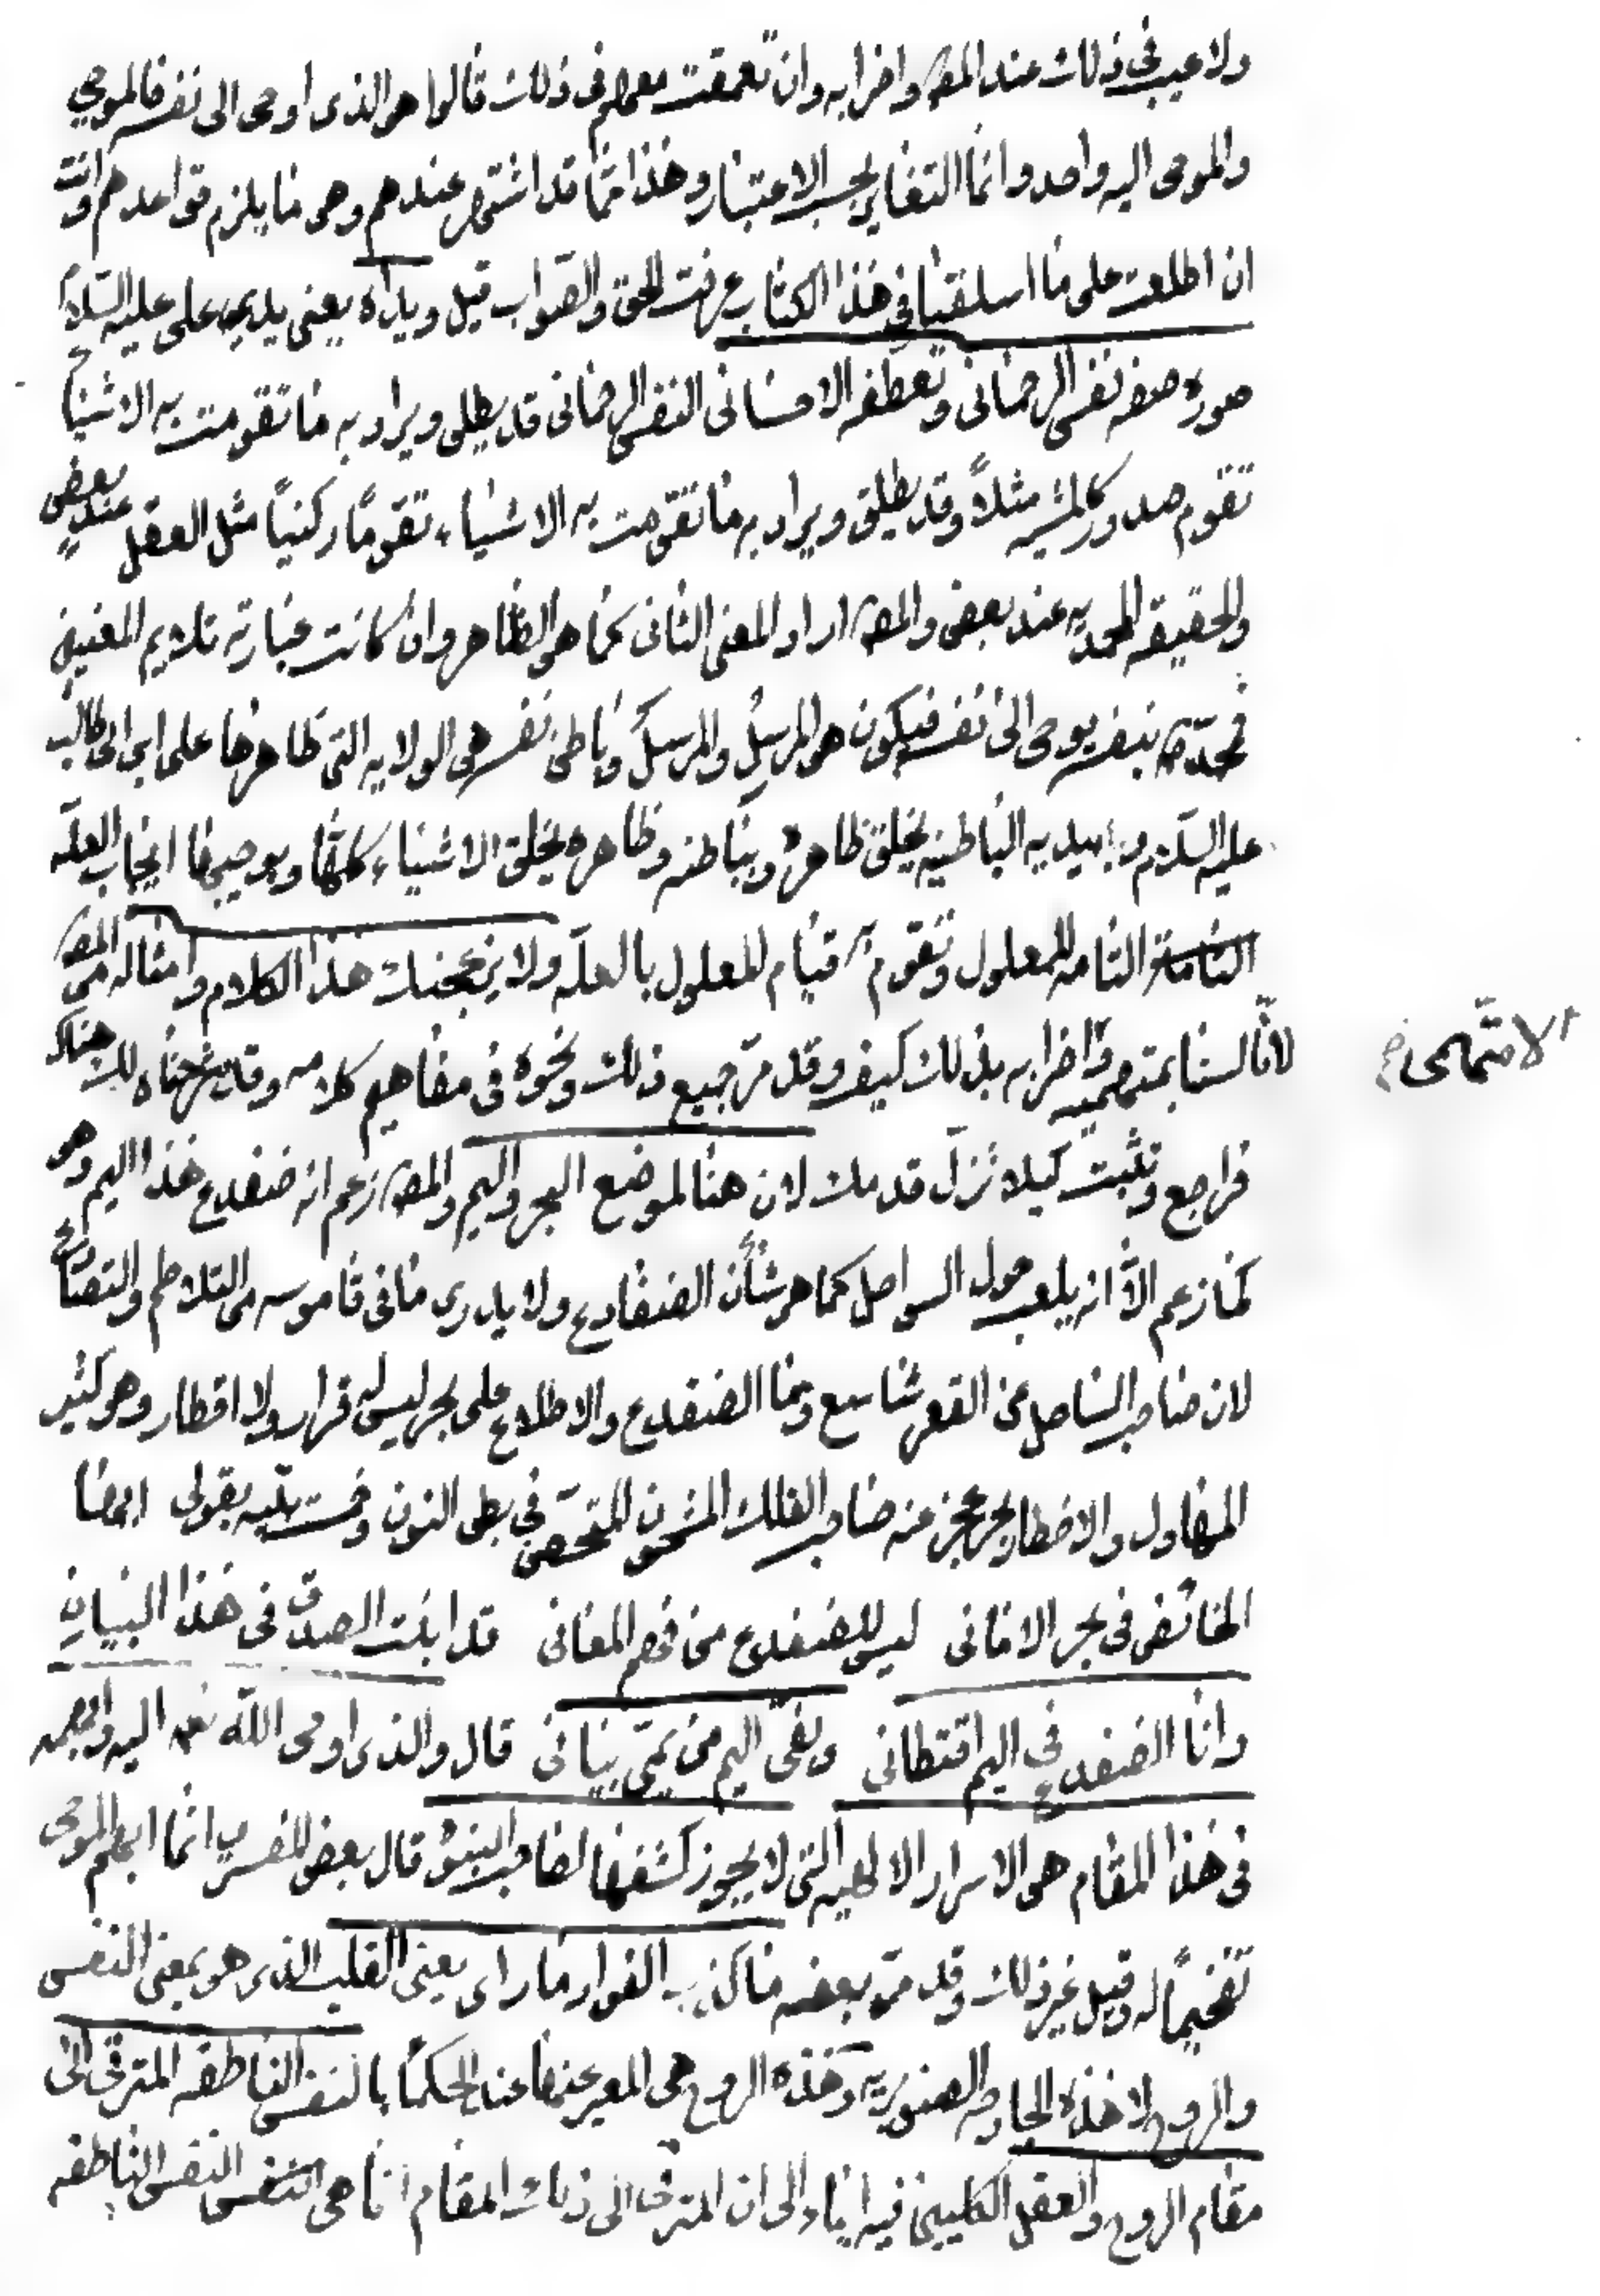 ولا عيب في ذلك عند المصـ واضرابه وان تعمقت معهم في ذلك قالوا هو الذى اوحى الى نفسه فالموحي
والموحى اليه واحد وانما التغاير بحسب الاعتبار وهذا مما قد اشتهر عندهم وهو مما يلزم قواعدهم وانت
ان اطلعت على ما اسلفنا في هذا الكتاب عرفت الحق والصواب قيل ويداه يعنى يديه على عليه السلام
صورة صفة نفس الرحمانى وتعطفه الاحسانى النفس الرحمانى قد يطلق ويراد به ما تقومت به الاشياء
تقوم صدور كالمشية مثلاً وقد يطلق ويراد به ما تقومت به الاشياء تقوماً ركنياً مثل العقل عند بعض
والحقيقة المحمدية عند بعض والمصـ اراد المعنى الثانى كما هو الظاهر وان كانت عبارته تلايم المعنيين
فمحمد ص بنفسه يوحى الى نفسه فيكون هو المرسِل والمرسَل وباطن نفسه هى الولاية التى ظاهرها على ابن ابى طالب
عليه السلام وبيديه الباطنية يخلق ظاهره وبباطنه وظاهره يخلق الاشياء كلها ويوجبها ايجاب العلة
التامة للمعلول وتقوم به قيام المعلول بالعلة ولا يزعجنك هذا الكلام وامثاله من المصـ
لانا لسنا بمتهمين واضرابه بذلك كيف وقد مر جميع ذلك ونحوه في مفاهيم كلامه وقد شرحناه لك هناك
فراجع وتثبت كيلا تزل قدمك لان هنا لموضع البحر واليم والمصـ زعم انه ضفدع هذا اليم وهو
كما زعم الا انه يلعب حول السواحل كما هو شأن الضفادع ولا يدرى ما في قاموسه من التلاطم والتصادم
لان صاحب الساحل عن القعر شاسع وما الضفدع والاطلاع على بحر ليس له قرار ولا اقطار وهو كثير
المهاول والاخطار بحر عجز عنه صاحب الفلك المشحون في بطن النون بقولى ايضا
الخائض في بحر الامانى ليس للضفدع من فهم المعانى قد ابنت الصدق في هذا البيان
وانا الضفدع في اليم اقتطانى وبقى اليم من يمى بيانى قال والذى اوحى الله تعه اليه وابهمه
في هذا المقام هو الاسرار الالهية التى لا يجوز كشفها لصاحب النبوة قال بعض المفسرين انما ابهم الموحى
تفخيماً له وقيل غير ذلك وقد مر بعضه ما كذب الفؤاد ما راى يعنى القلب الذى هو بمعنى النفس
والروح لا هذه الجارحة الصنوبرية وهذه الروح هى المعبر عنها عند الحكما بالنفس الناطقة المترقى الى
مقام الروح والعقل الكليين فيه ايماء الى ان المترقى الى ذلك المقام انما هى النفس الناطقة